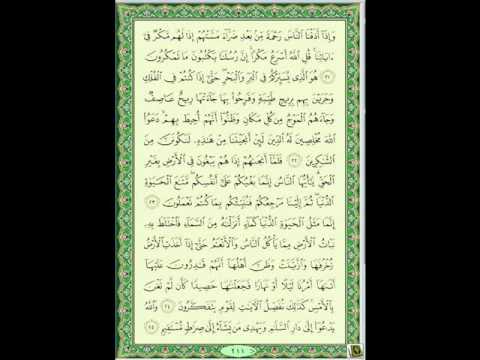 وَإِذَآ أَذَقْنَا ٱلنَّاسَ رَحْمَةً مِّنۢ بَعْدِ ضَرَّآءَ مَسَّتْهُمْ إِذَا لَهُم مَّكْرٌ فِىٓ
ءَايَاتِنَا ۚ قُلِ ٱللَّهُ أَسْرَعُ مَكْرًا ۚ إِنَّ رُسُلَنَا يَكْتُبُونَ مَا تَمْكُرُونَ
٢١ هُوَ ٱلَّذِى يُسَيِّرُكُمْ فِى ٱلْبَرِّ وَٱلْبَحْرِ ۖ حَتَّىٰٓ إِذَا كُنتُمْ فِى ٱلْفُلْكِ
وَجَرَيْنَ بِهِم بِرِيحٍ طَيِّبَةٍ وَفَرِحُوا۟ بِهَا جَآءَتْهَا رِيحٌ عَاصِفٌ
وَجَآءَهُمُ ٱلْمَوْجُ مِن كُلِّ مَكَانٍ وَظَنُّوٓا۟ أَنَّهُمْ أُحِيطَ بِهِمْ ۙ دَعَوُا۟
ٱللَّهَ مُخْلِصِينَ لَهُ ٱلدِّينَ لَئِنْ أَنجَيْتَنَا مِنْ هَٰذِهِۦ لَنَكُونَنَّ مِنَ
ٱلشَّٰكِرِينَ ٢٢ فَلَمَّآ أَنجَىٰهُمْ إِذَا هُمْ يَبْغُونَ فِى ٱلْأَرْضِ بِغَيْرِ
ٱلْحَقِّ ۗ يَٰٓأَيُّهَا ٱلنَّاسُ إِنَّمَا بَغْيُكُمْ عَلَىٰٓ أَنفُسِكُم ۖ مَّتَٰعَ ٱلْحَيَوٰةِ
ٱلدُّنْيَا ۖ ثُمَّ إِلَيْنَا مَرْجِعُكُمْ فَنُنَبِّئُكُم بِمَا كُنتُمْ تَعْمَلُونَ ٢٣
إِنَّمَا مَثَلُ ٱلْحَيَوٰةِ ٱلدُّنْيَا كَمَآءٍ أَنزَلْنَٰهُ مِنَ ٱلسَّمَآءِ فَٱخْتَلَطَ بِهِۦ
نَبَاتُ ٱلْأَرْضِ مِمَّا يَأْكُلُ ٱلنَّاسُ وَٱلْأَنْعَٰمُ حَتَّىٰٓ إِذَآ أَخَذَتِ ٱلْأَرْضُ
زُخْرُفَهَا وَٱزَّيَّنَتْ وَظَنَّ أَهْلُهَآ أَنَّهُمْ قَٰدِرُونَ عَلَيْهَآ
أَتَىٰهَآ أَمْرُنَا لَيْلًا أَوْ نَهَارًا فَجَعَلْنَٰهَا حَصِيدًا كَأَن لَّمْ تَغْنَ
بِٱلْأَمْسِ ۚ كَذَٰلِكَ نُفَصِّلُ ٱلْءَايَٰتِ لِقَوْمٍ يَتَفَكَّرُونَ ٢٤ وَٱللَّهُ
يَدْعُوٓا۟ إِلَىٰ دَارِ ٱلسَّلَٰمِ وَيَهْدِى مَن يَشَآءُ إِلَىٰ صِرَٰطٍ مُّسْتَقِيمٍ ٢٥
٢١١